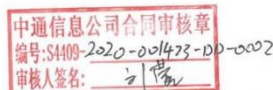 中通信息公司合同审核章
编号:S4409-2020-001473-DD-0002
审核人签名: